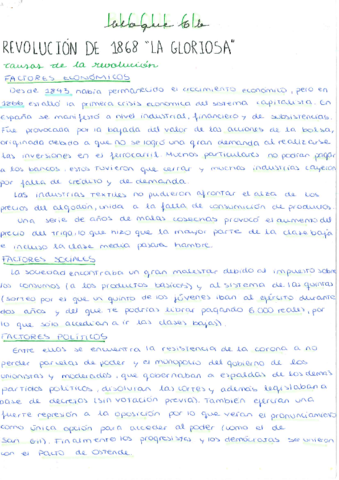 REVOLUCIÓN DE 1868 "LA GLORIOSA"
causas de la revolución
FACTORES ECONÓMICOS
Desde 1843 había permanecido el crecimiento económico, pero en
1866 estalló la primera crisis económica del sistema capitalista. En
España se manifestó a nivel industrial, financiero y de subsistencias.
Fue provocada por la bajada del valor de las acciones de la bolsa,
originada debido a que no se logró una gran demanda al realizarse
las inversiones en el ferrocarril. Muchos particulares no podían pagar
a los bancos. estos tuvieron que cerrar y muchas industrias cayeron
por falta de crédito y de demanda.
Las industrias textiles no pudieron afrontar el alza de los
precios del algodón, unida a la falta de consumición de productos.
Una serie de años de malas cosechas provocó el aumento del
precio del trigo, lo que hizo que la mayor parte de la clase baja
e incluso la clase media pasara hambre.
FACTORES SOCIALES
La sociedad encontraba un gran malestar debido al impuesto sobre
los consumos (a los productos básicos) y al sistema de las quintas
(sorteo por el que un quinto de los jóvenes iban al ejército durante
dos años y del que te podrías librar pagando 6.000 reales, por
lo que solo accedían a ir las clases bajas).
FACTORES POLÍTICOS
Entre ellos se encuentra la resistencia de la corona a no
perder parcelas de poder y el monopolio del gobierno de los
unionistas y moderados, que gobernaban a espaldas de los demás
partidos políticos, disolvían las cortes y además legislaban a
base de decretos (sin votación previa). También ejercían una
fuerte represión a la oposición por lo que veían el pronunciamiento
como única opción para acceder al poder (como el de
San Gil). Finalmente los progresistas y los demócratas se unieron
con el Pacto de Ostende.